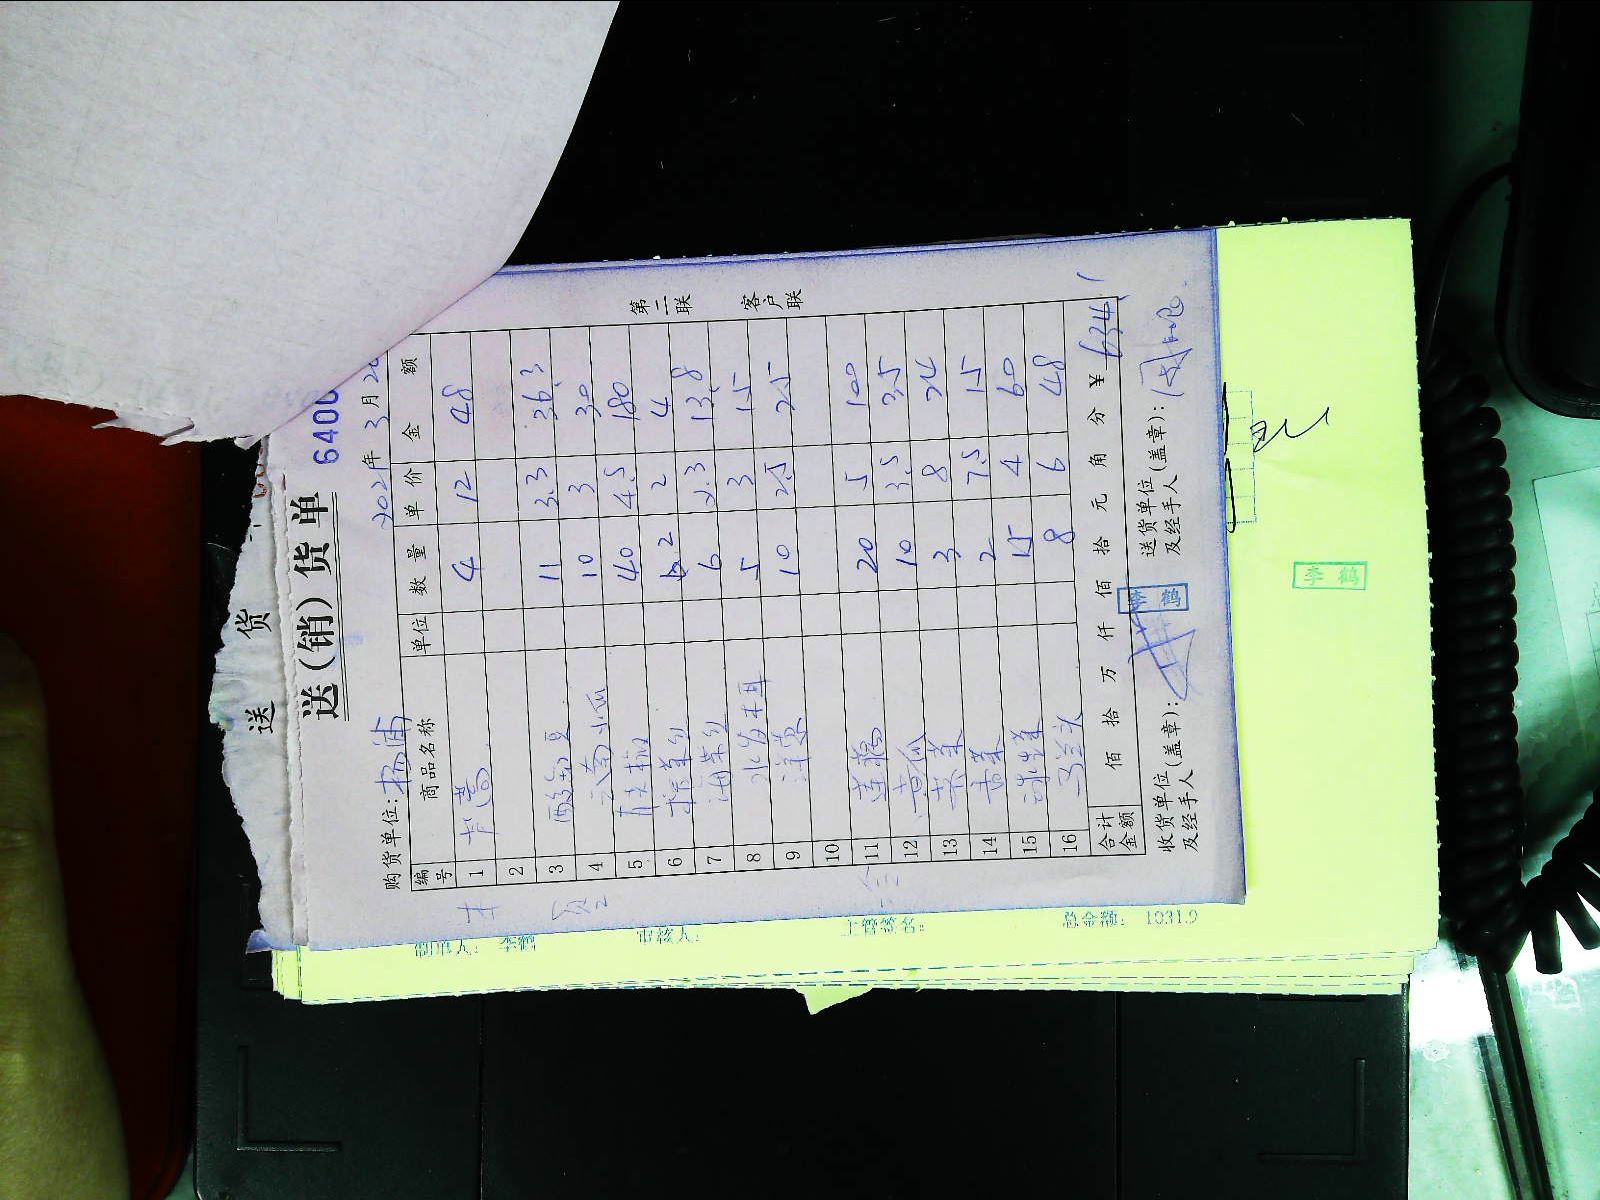 送 货
送(销)货单
6400
购货单位: 杨浦
2021年 3月 20
编号 商品名称 单位 数量 单价 金额
1 芦蒿 4 12 48
2
3 11 3.3 36.3
4 10 3 30
5 40 4.5 180
6 2 2 4
7 海带 6 2.3 13.8
8 水发木耳 5 3 15
9 洋葱 10 2.5 25
10
11 莲藕 20 5 100
12 黄瓜 10 3.5 35
13 3 8 24
14 2 7.5 15
15 15 4 60
16 马兰头 8 6 48
合计金额 佰 拾 万 仟 佰 拾 元 角 分 ¥ 634.1
收货单位及经手人(盖章):
送货单位及经手人(盖章):
李鹤
第二联 客户联
制单人: 李鹤 审核人: 主管签名: 总金额: 1031.9
李鹤